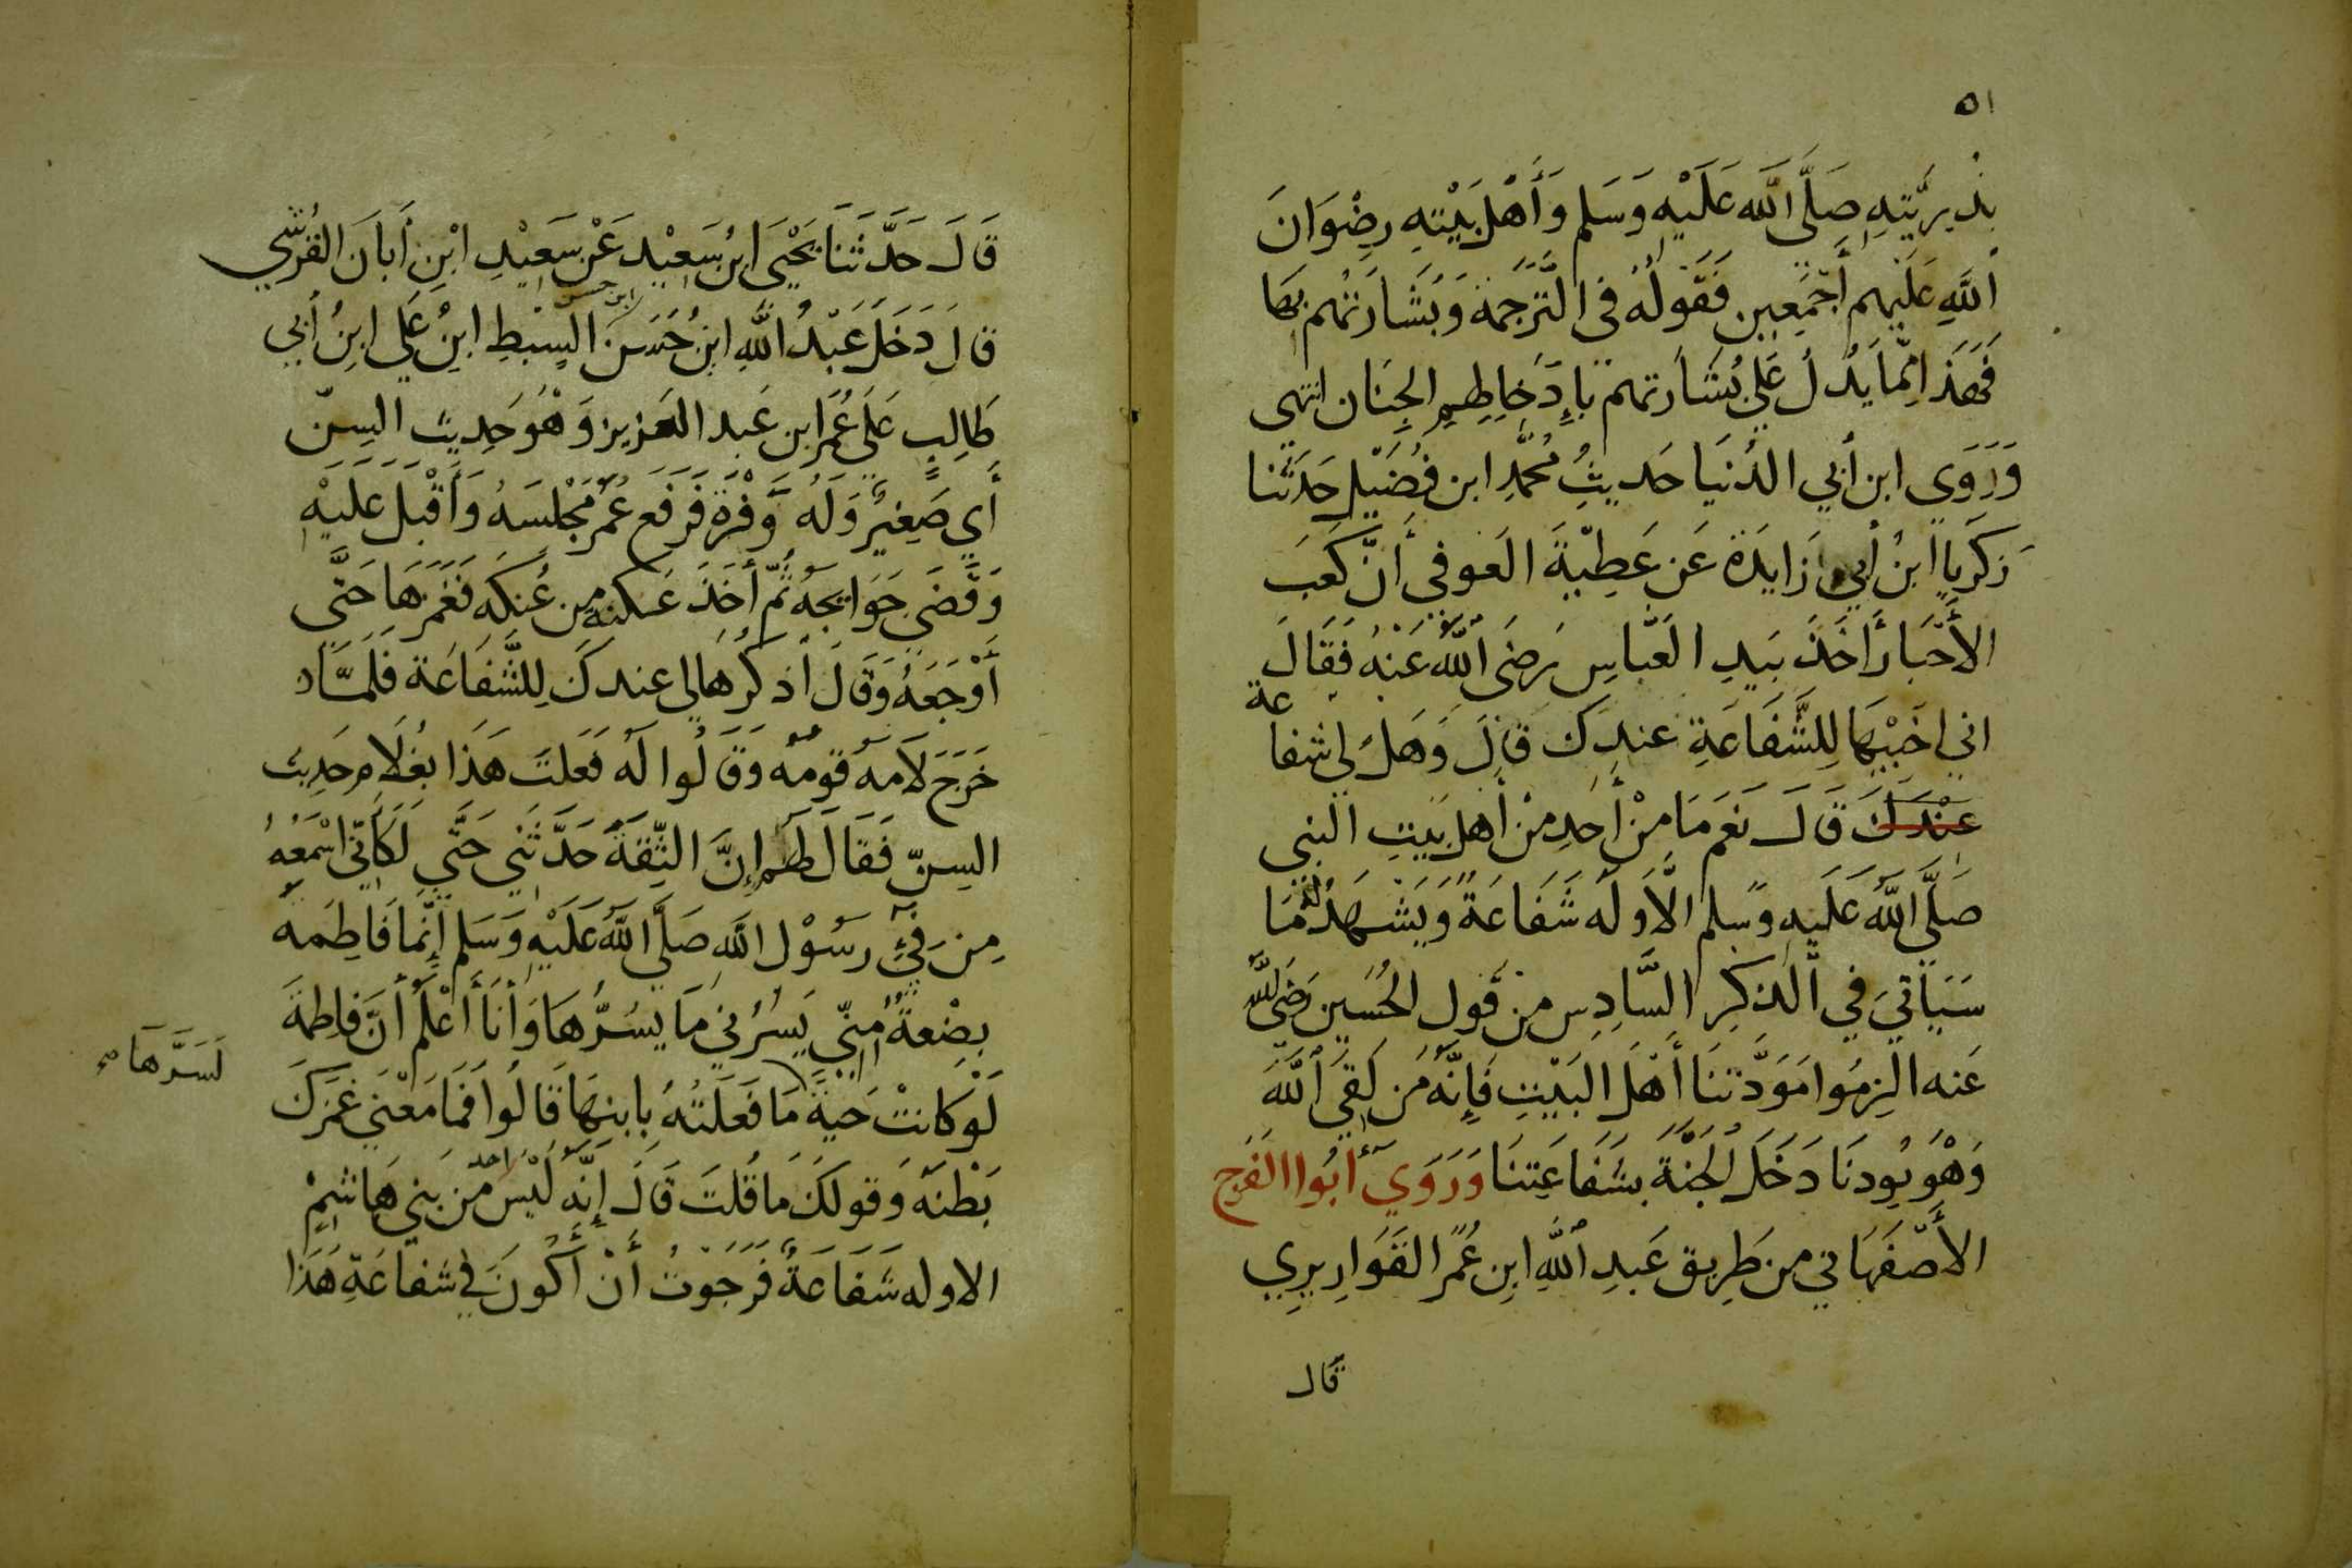 ٥١
بذريته صلى الله عليه وسلم وأهل بيته رضوان
الله عليهم أجمعين فقوله فى الترجمة وبشارتهم بها
فهذا إنما يدل على بشارتهم بإدخالهم الجنان انتهى
وروى ابن أبي الدنيا حديث محمد ابن فضيل حدثنا
زكريا ابن أبي زايدة عن عطية العوفي أن كعب
الأحبار أخذ بيد العباس رضى الله عنه فقال
اني اخبيها للشفاعة عندك قال وهل لي شفاعة
عندك قال نعم ما من أحد من أهل بيت النبي
صلى الله عليه وسلم الا وله شفاعة ويشهد له ما
سياتي في الذكر السادس من قول الحسين رضى الله
عنه الزموا مودتنا أهل البيت فإنه من لقي الله
وهو يودنا دخل الجنة بشفاعتنا وروي أبوا الفرج
الأصفهاني من طريق عبد الله ابن عمر القواريري
قال
قال حدثنا يحيى ابن سعيد عن سعيد ابن أبان القرشي
قال دخل عبد الله ابن حسن ابن حسن السبط ابن علي ابن أبي
طالب على عمر ابن عبد العزيز وهو حديث السن
أي صغير وله وفرة فرفع عمر مجلسه وأقبل عليه
وقضى حوايجه ثم أخذ عكنة من عكنه فغمزها حتى
أوجعه وقال أذكرها لي عندك للشفاعة فلما
خرج لامه قومه وقالوا له فعلت هذا بغلام حديث
السن فقال لهم إن الثقة حدثني حتى لكأني اسمعه
من في رسول الله صلى الله عليه وسلم إنما فاطمه
بضعة مني يسرني ما يسرها وأنا أعلم أن فاطمة
لو كانت حية ما فعلته بابنها قالوا فما معنى غمزك
لسرها صح
بطنه وقولك ما قلت قال إنه ليس احد من بني هاشم
الا وله شفاعة فرجوت أن أكون في شفاعة هذا